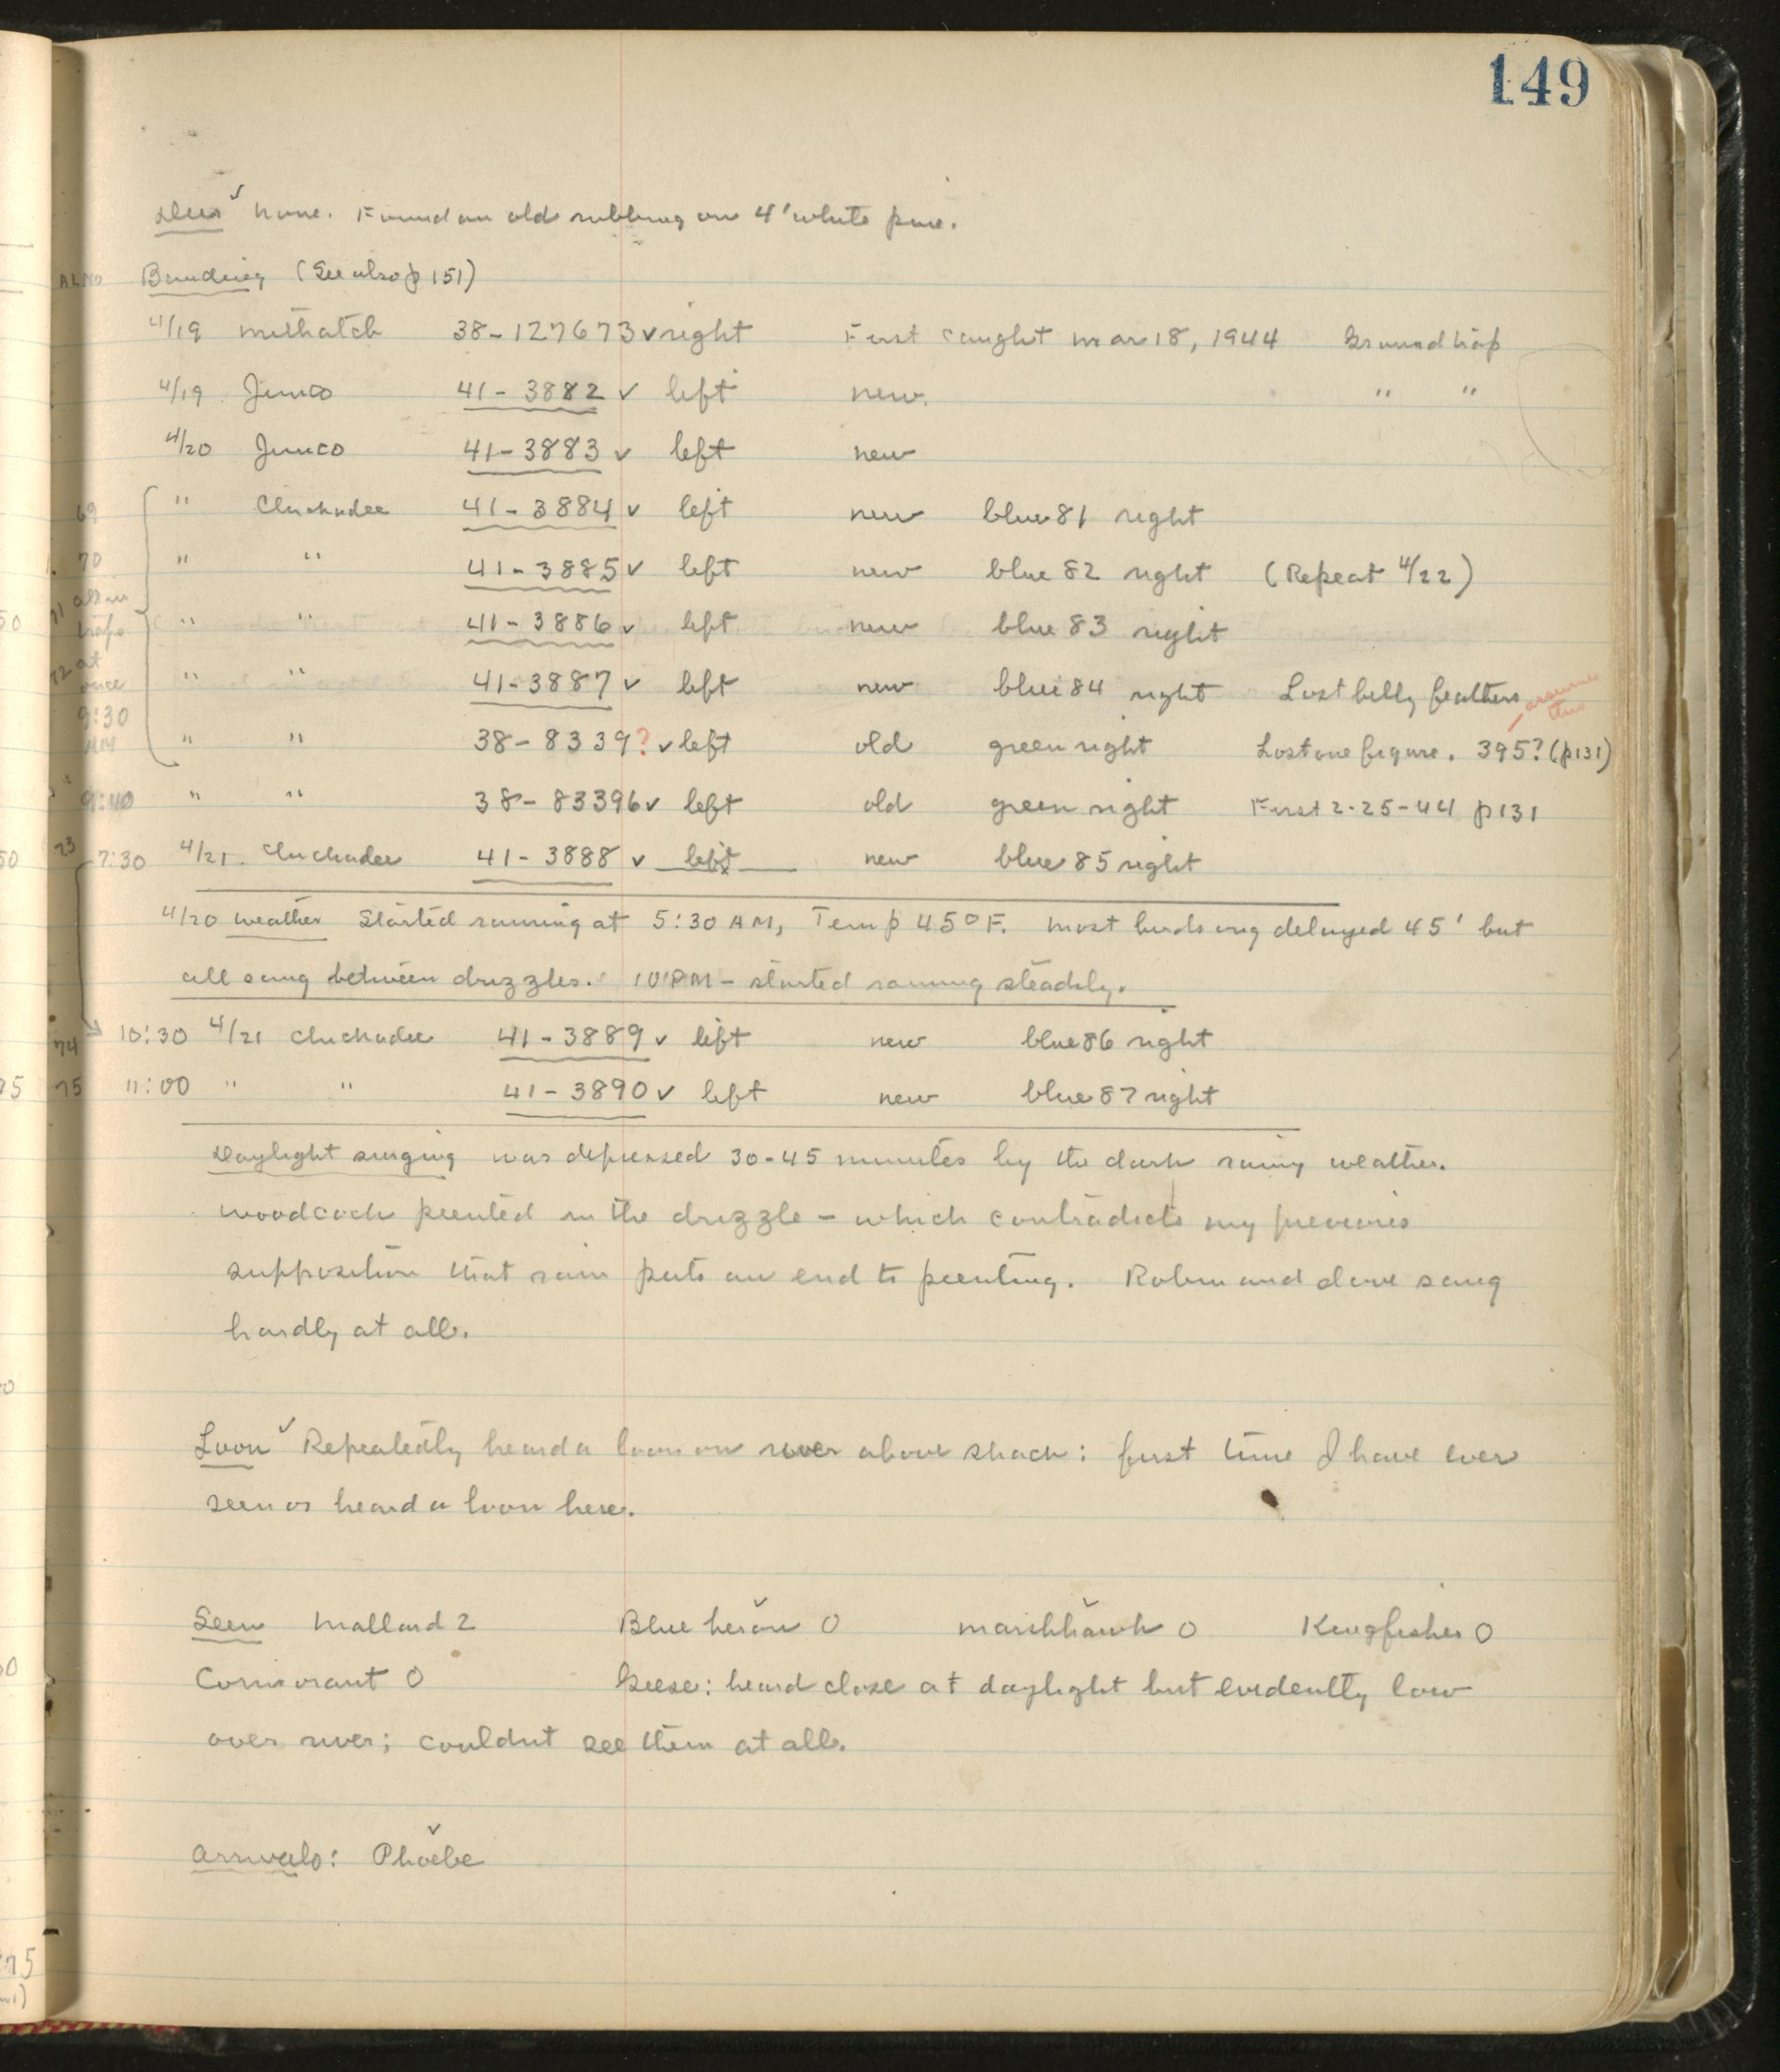 149
Deer ✓ None. Found an old rubbing on 4' white pine.
Banding (See also p 151)
4/19 Nuthatch 38-127673 ✓ right First caught Mar 18, 1944 Ground trap
4/19 Junco 41-3882 ✓ left new. " "
4/20 Junco 41-3883 ✓ left new
69 " Chickadee 41-3884 ✓ left new blue 81 right
70 " " 41-3885 ✓ left new blue 82 right (Repeat 4/22)
71 all in traps " " 41-3886 ✓ left new blue 83 right
72 at once " " 41-3887 ✓ left new blue 84 right Lost belly feathers
9:30 AM " " 38-8339? ✓ left old green right Lost one figure. 395? (p131) assume this
9:40 " " 38-83396 ✓ left old green right First 2-25-44 p131
73 7:30 4/21. Chickadee 41-3888 ✓ left new blue 85 right
4/20 Weather Started raining at 5:30 AM, Temp 45°F. Most birdsong delayed 45' but
all sang between drizzles. 10 PM - started raining steadily.
74 10:30 4/21 Chickadee 41-3889 ✓ left new blue 86 right
75 11:00 " " 41-3890 ✓ left new blue 87 right
Daylight singing was depressed 30-45 minutes by the dark rainy weather.
Woodcock peented in the drizzle - which contradicts my previous
supposition that rain puts an end to peenting. Robin and dove sang
hardly at all.
Loon ✓ Repeatedly heard a loon on river above shack: first time I have ever
seen or heard a loon here.
Seen Mallard 2 Blue heron ✓ 0 Marshhawk ✓ 0 Kingfisher 0
Cormorant 0 Geese: heard close at daylight but evidently low
over river; couldnt see them at all.
Arrivals: Phoebe ✓